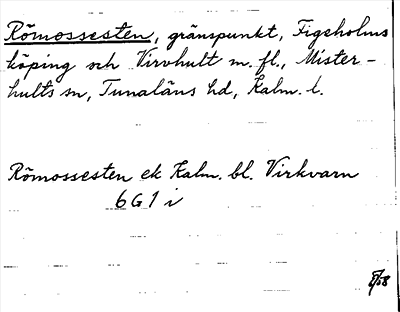 Römossesten, gränspunkt, Figeholms
köping och Virvhult m. fl., Mister-
hults sn, Tunaläns hd, Kalm. l.
Römossesten ek Kalm. bl. Virkvarn
6G1i